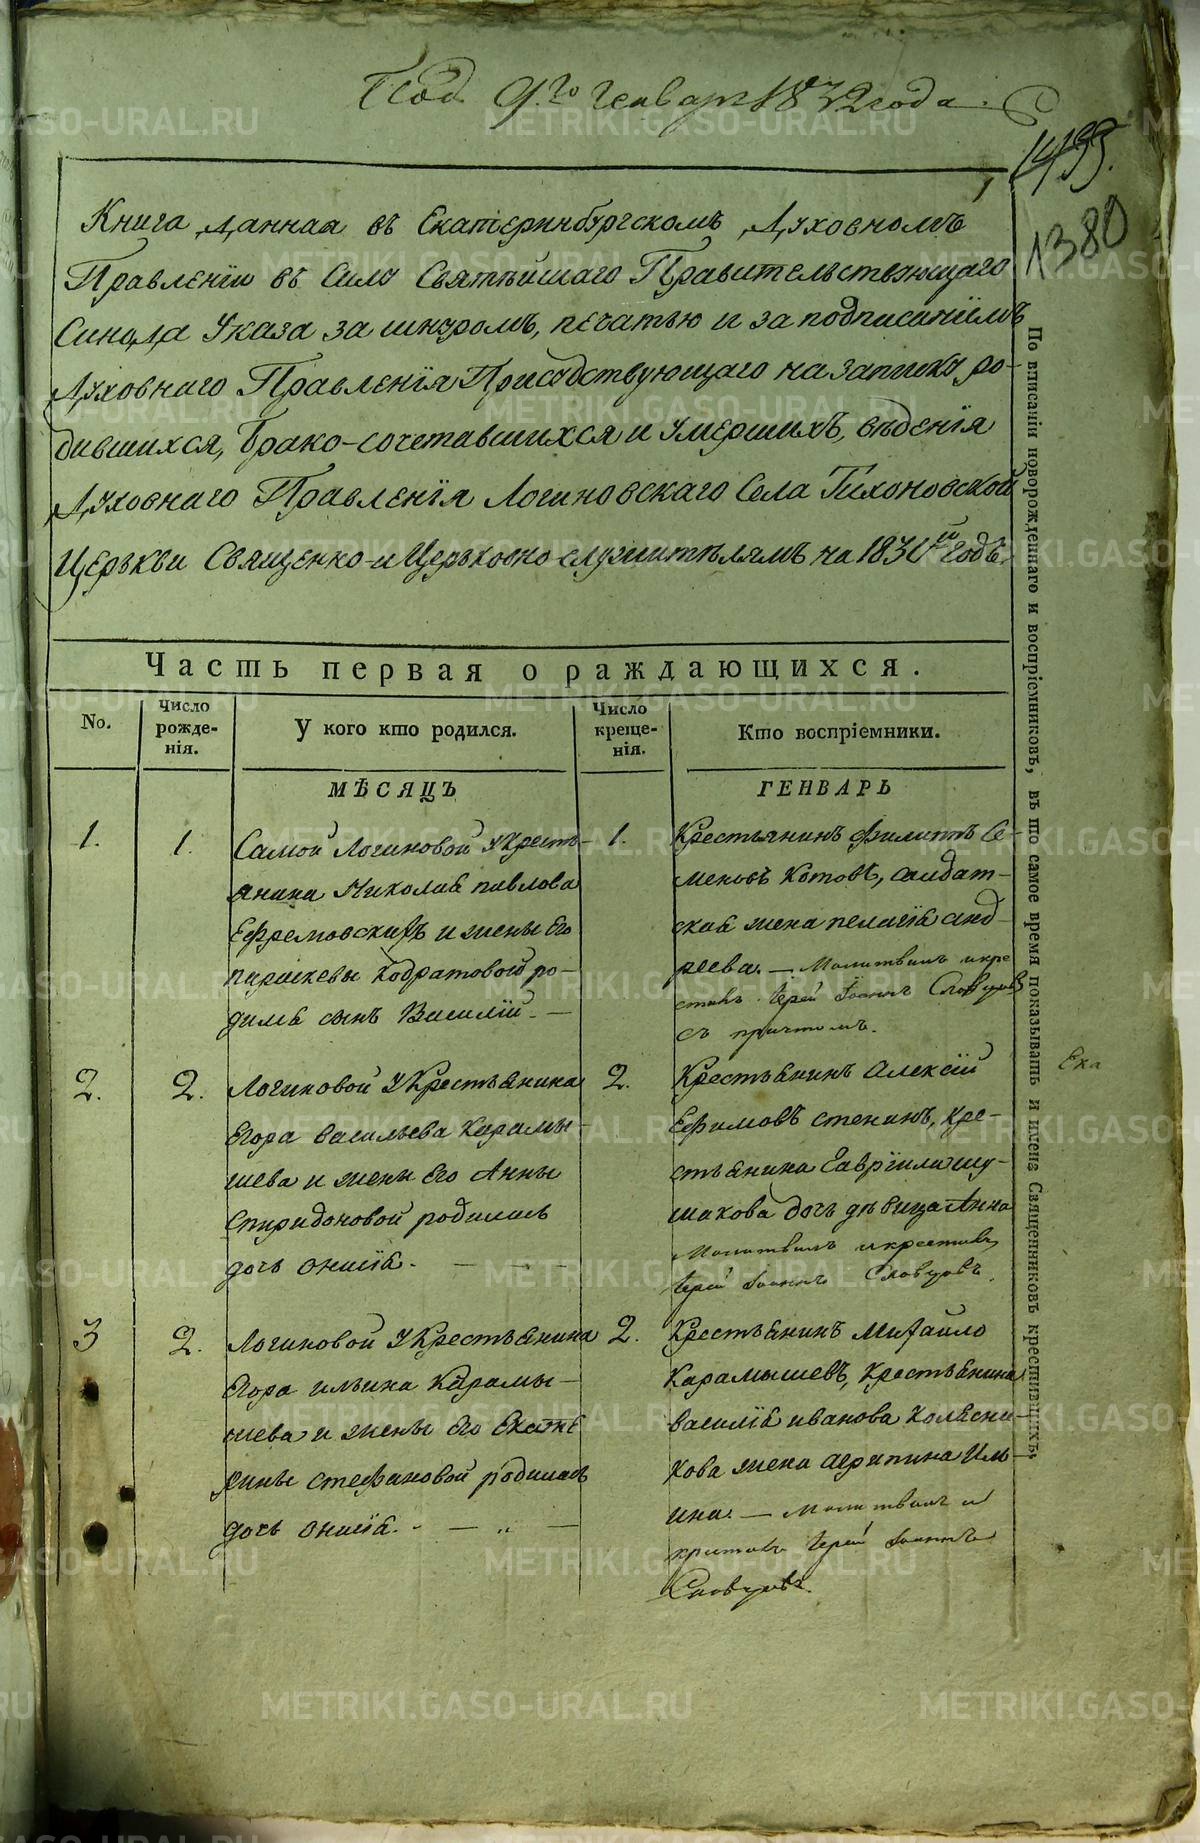 Под. 9.го Генваря 1832 года.
1499.
1380
1
Книга данная въ Екатеринбургскомъ Духовномъ
Правленіи въ Силу Святѣйшаго Правительствующаго
Синода Указа за шнуромъ, печатью и за подписаніемъ
Духовнаго Правленія Присудствующаго на записку ро-
дившихся, Брако-сочетавшихся и умершихъ, вѣденія
Духовнаго Правленія Логиновскаго Села Тихоновской
Церькви Священно-и Церьковно служителямъ на 1831й годъ.
Часть первая о раждающихся.
No.
Число рожденія.
У кого кто родился.
Число крещенія.
Кто воспріемники.
МѢСЯЦЪ
ГЕНВАРЬ
1.
1.
Самой Логиновой у Кресть-
янина Николая павлова
Ефремовскихъ и жены Его
параскевы Кодратовой ро-
дился сынъ Василій. —
1.
Крестьянинъ Филиппъ Се-
меновъ Котовъ, салдат-
ская жена пелагія Анд-
реева. — Молитвилъ и кре
стилъ Іерей Іоаннъ Словцовъ
съ причтомъ.
2.
2.
Логиновой у Крестьянина
Егора васильева Карамы-
шева и жены Его Анны
Спиридоновой родилась
дочь Онисія. — — —
2.
Крестьянинъ Алексій
Ефимовъ стенинъ, кре-
стьянина Гавріила шу-
макова дочь дѣвица Анна
Молитвилъ и крестилъ
Іерей Іоаннъ Словцовъ.
Ека
3
2.
Логиновой у Крестьянина
Егора ильина Карамы-
шева и жены Его Екате
рины стефановой родилась
дочь Онисія. - — „ —
2.
Крестьянинъ Михайло
Карамышевъ, Крестьянина
василія иванова Колясни-
кова жена агрипина Иль-
ина. — Молитвилъ и
крстилъ Іерей Іоаннъ
Словцовъ.
По вписаніи новорожденнаго и воспріемниковъ, въ то самое время показывать и имена Священниковъ крестившихъ.